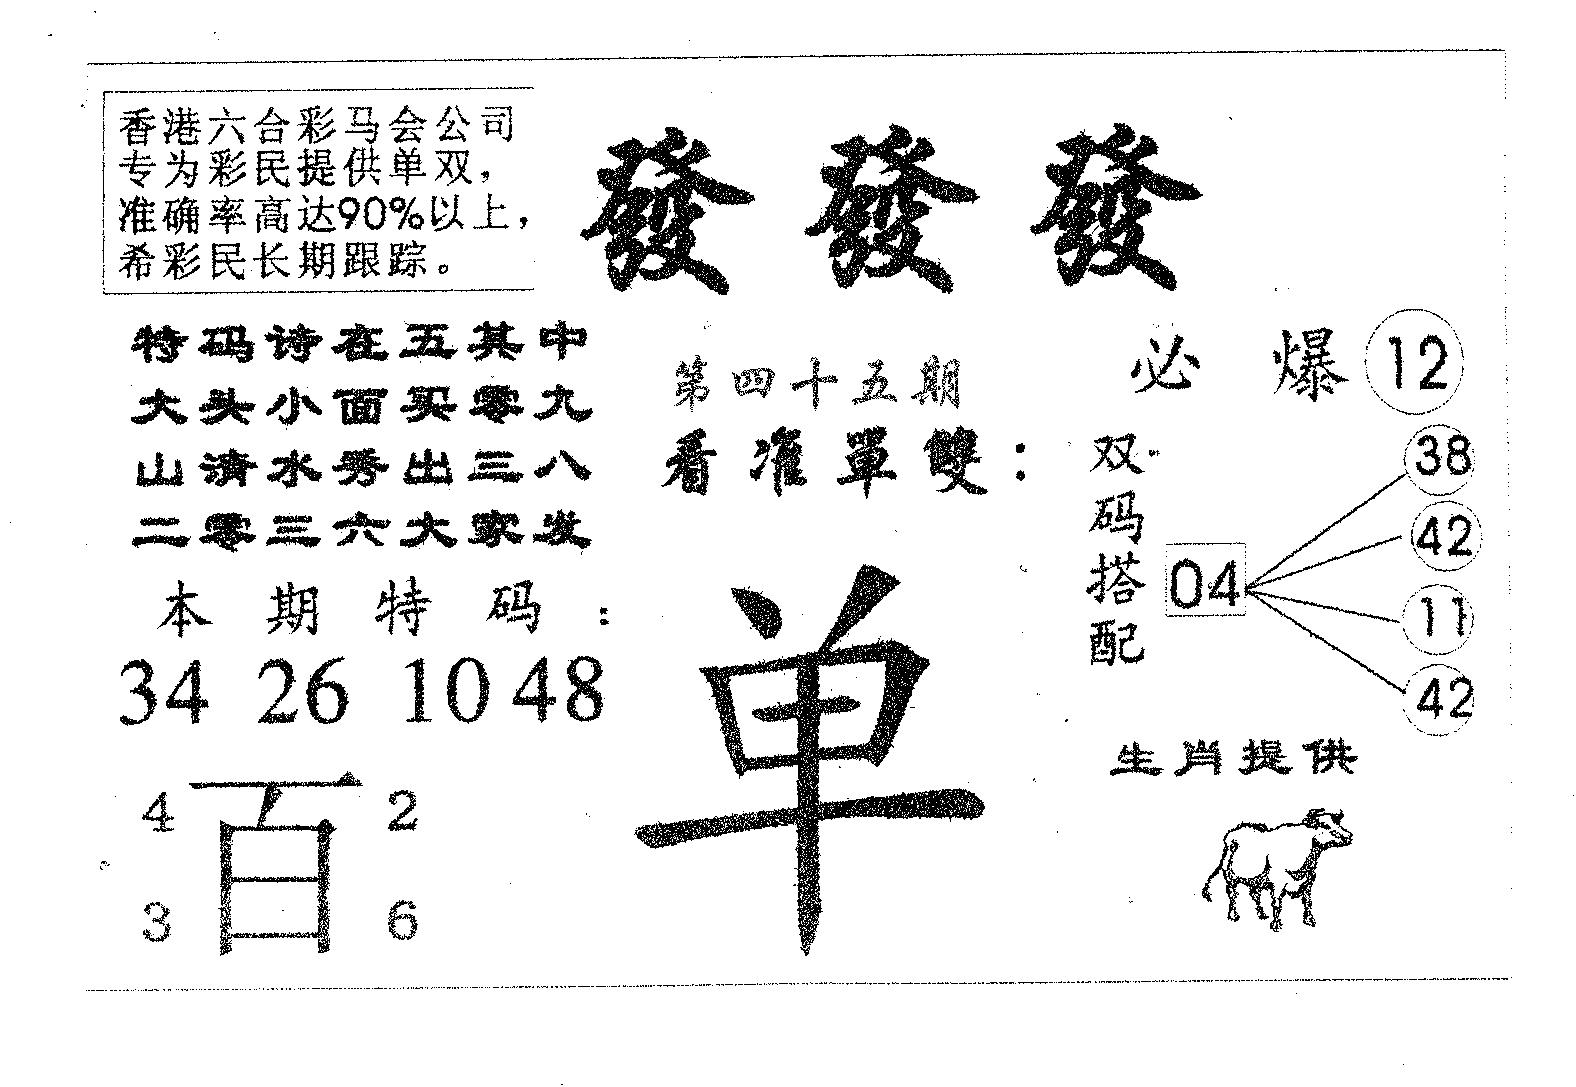 香港六合彩马会公司
专为彩民提供单双，
准确率高达90%以上，
希彩民长期跟踪。
發發發
特码诗在五其中
大头小面买零九
山清水秀出三八
二零三六大家发
本期特码：
34 26 10 48
4 百 2
3 6
第四十五期
看准單雙：
单
必爆 12
双码搭配
04
38
42
11
42
生肖提供